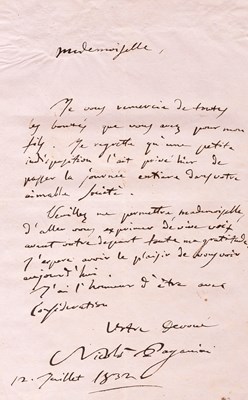 Mademoiselle,
Je vous remercie de toutes
les bontés que vous avez pour mon
fils. Je regrette qu'une petite
indisposition l'ait privé hier de
passer la journée entière dans votre
aimable Société.
Veuillez me permettre, mademoiselle
d'aller vous exprimer de vive voix
avant votre depart toute ma gratitude
J'espère avoir le plaisir de vous voir
aujourd'hui.
J'ai l'honneur d'être avec
Consideration
Votre Devoué
Nicolò Paganini
12. Juillet 1832